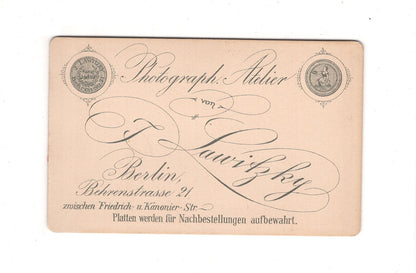 Photograph. Atelier
von
J. Sawitzky
Berlin,
Behrenstrasse 21
zwischen Friedrich- u. Kanonier-Str.
Platten werden für Nachbestellungen aufbewahrt.